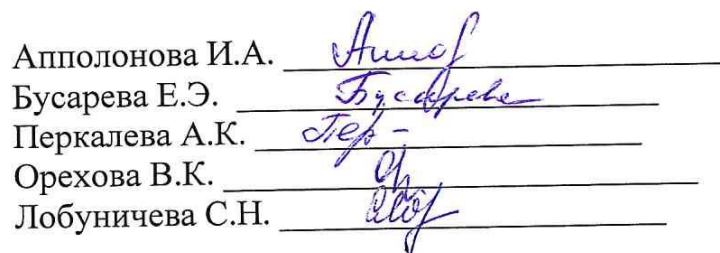 Апполонова И.А.
Бусарева Е.Э. Бусарева
Перкалева А.К. Пер-
Орехова В.К. Ор
Лобуничева С.Н.